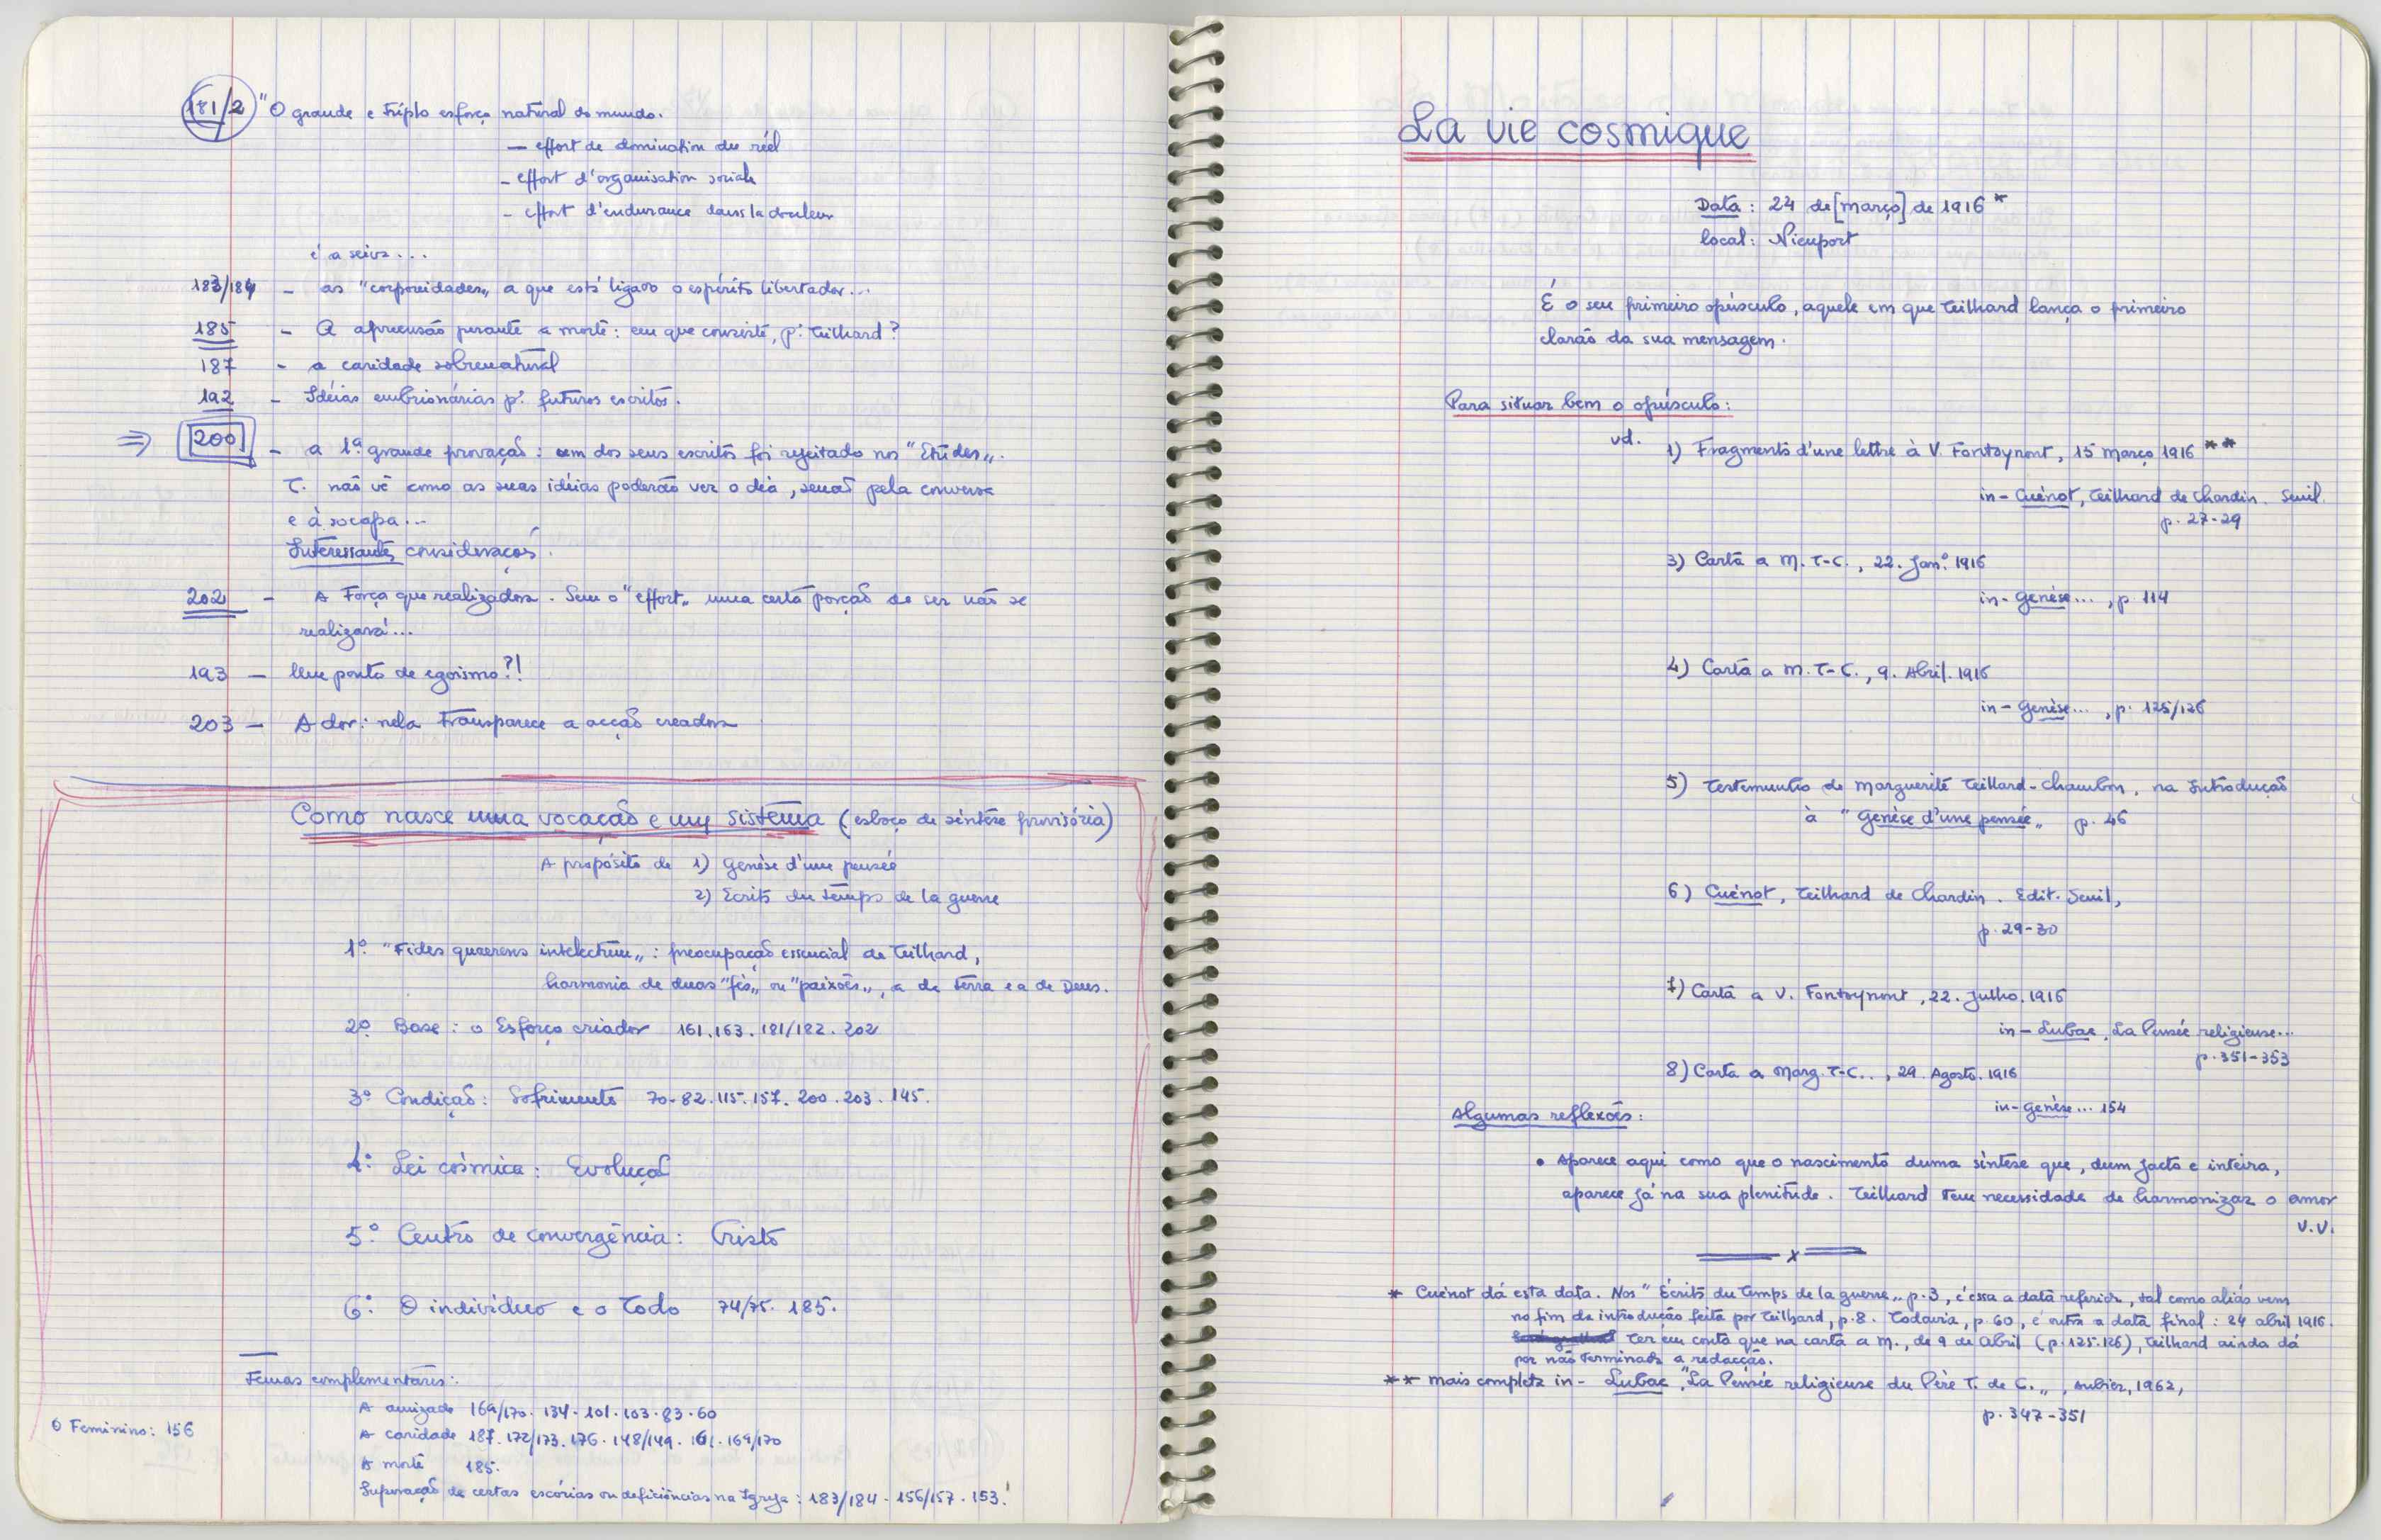 181/2 "O grande e triplo esforço natural do mundo.
— effort de domination du réel
- effort d'organisation sociale
- effort d'endurance dans la douleur
é a seiva...
183/184 - as "corporeidades" a que está ligado o espírito libertador...
185 - A apreensão perante a morte: em que consiste, pª Teilhard?
187 - a caridade sobrenatural
192 - Idéias embrionárias pª futuros escritos.
⇒ 200 - a 1ª grande provação: um dos seus escritos foi rejeitado nos "Etudes".
T. não vê como as suas idéias poderão ver o dia, senão pela conversa
e à socapa...
Interessantes considerações.
202 - A Força que realizadora. Sem o "effort" uma certa porção de ser não se
realizará...
193 — Um ponto de egoísmo?!
203 — A dor: nela transparece a acção creadora
Como nasce uma vocação e um sistema (esboço de síntese provisória)
A propósito de 1) Genèse d'une pensée
2) Ecrits du temps de la guerre
1º. "Fides quaerens intelectum": preocupação essencial de Teilhard,
harmonia de duas "fés" ou "paixões", a da Terra e a de Deus.
2º. Base: o Esforço criador 161.163.181/182.202
3º Condição: Sofrimento 70-82.115.157.200.203.145.
4º. Lei cósmica: Evolução
5º. Centro de convergência: Cristo
6º. O indivíduo e o Todo 74/75. 185.
Temas complementares:
A amizade 169/170. 134.101.103.83.60
A caridade 187.172/173.176.148/149.161.169/170
O Feminino: 156
A morte 185.
Superação de certas escórias ou deficiências na Igreja: 183/184.156/157.153.
La vie cosmique
Data: 24 de [março] de 1916 *
local: Nieuport
É o seu primeiro opúsculo, aquele em que Teilhard lança o primeiro
clarão da sua mensagem.
Para situar bem o opúsculo:
vd. 1) Fragments d'une lettre à V. Fontoynont, 15 março 1916 **
in - Cuénot, Teilhard de Chardin. Seuil.
p. 27-29
3) Carta a M. T-C., 22. Janº. 1916
in - Genèse..., p. 114
4) Carta a M. T-C., 9. Abril. 1916
in - Genèse..., p. 125/126
5) Testemunho de Marguerite Teillard-Chambon, na Introdução
à "Genèse d'une pensée" p. 46
6) Cuénot, Teilhard de Chardin. Edit. Seuil,
p. 29-30
7) Carta a V. Fontoynont, 22. Julho. 1916
in - Lubac, La Pensée religieuse...
p. 351-353
8) Carta a Marg. T-C.., 29. Agosto. 1916
in - Genèse... 154
Algumas reflexões:
• Aparece aqui como que o nascimento duma síntese que, dum jacto e inteira,
aparece já na sua plenitude. Teilhard tem necessidade de harmonizar o amor
v.v.
x
* Cuénot dá esta data. Nos "Écrits du temps de la guerre" p. 3, é essa a data referida, tal como aliás vem
no fim da introdução feita por Teilhard, p. 8. Todavia, p. 60, é outra a data final: 24 abril 1916.
Ter em conta que na carta a M., de 9 de abril (p. 125.126), Teilhard ainda dá
por não terminada a redacção.
** mais completa in - Lubac, "La Pensée religieuse du Père T. de C.", Aubier, 1962,
p. 347-351